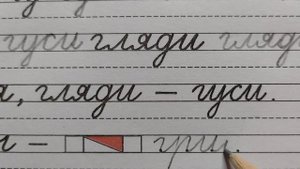 гуси гляди гляд
а, гляди – гуси.
–